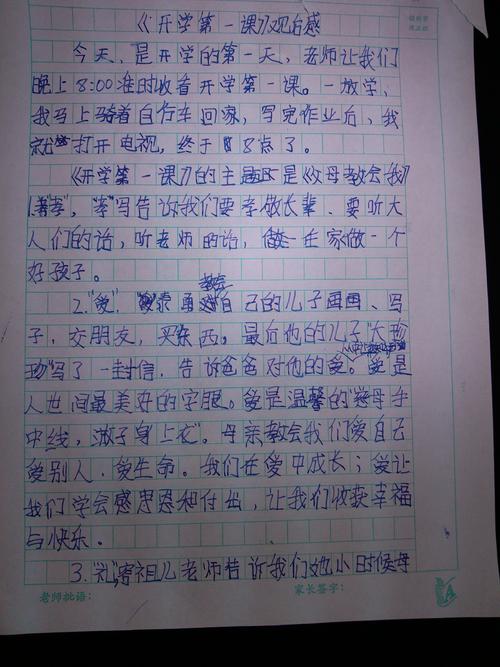 《开学第一课》观后感
今天,是开学的第一天,老师让我们
晚上8:00准时收看开学第一课。一放学,
我马上骑着自行车回家,写完作业后,我
就打开电视,终于8点了。
《开学第一课》的主题是《父母教会我》
1."孝","孝"写告诉我们要孝敬长辈、要听大
人们的话,听老师的话,做一在家做一个
好孩子。
教会
2."爱",自己的儿子画画、写
字,交朋友,买东西。最后他的儿子"大
写了一封信,告诉爸爸对他的爱。爱是
人世间最美好的字眼。爱是温馨的"慈母手
中线,游子身上衣"。母亲教会我们爱自己
爱别人、爱生命。我们在爱中成长;爱让
我们学会感思恩和付出,让我们收获幸福
与快乐。
3."礼",老师告诉我们她小时候母
老师批语:
家长签字: